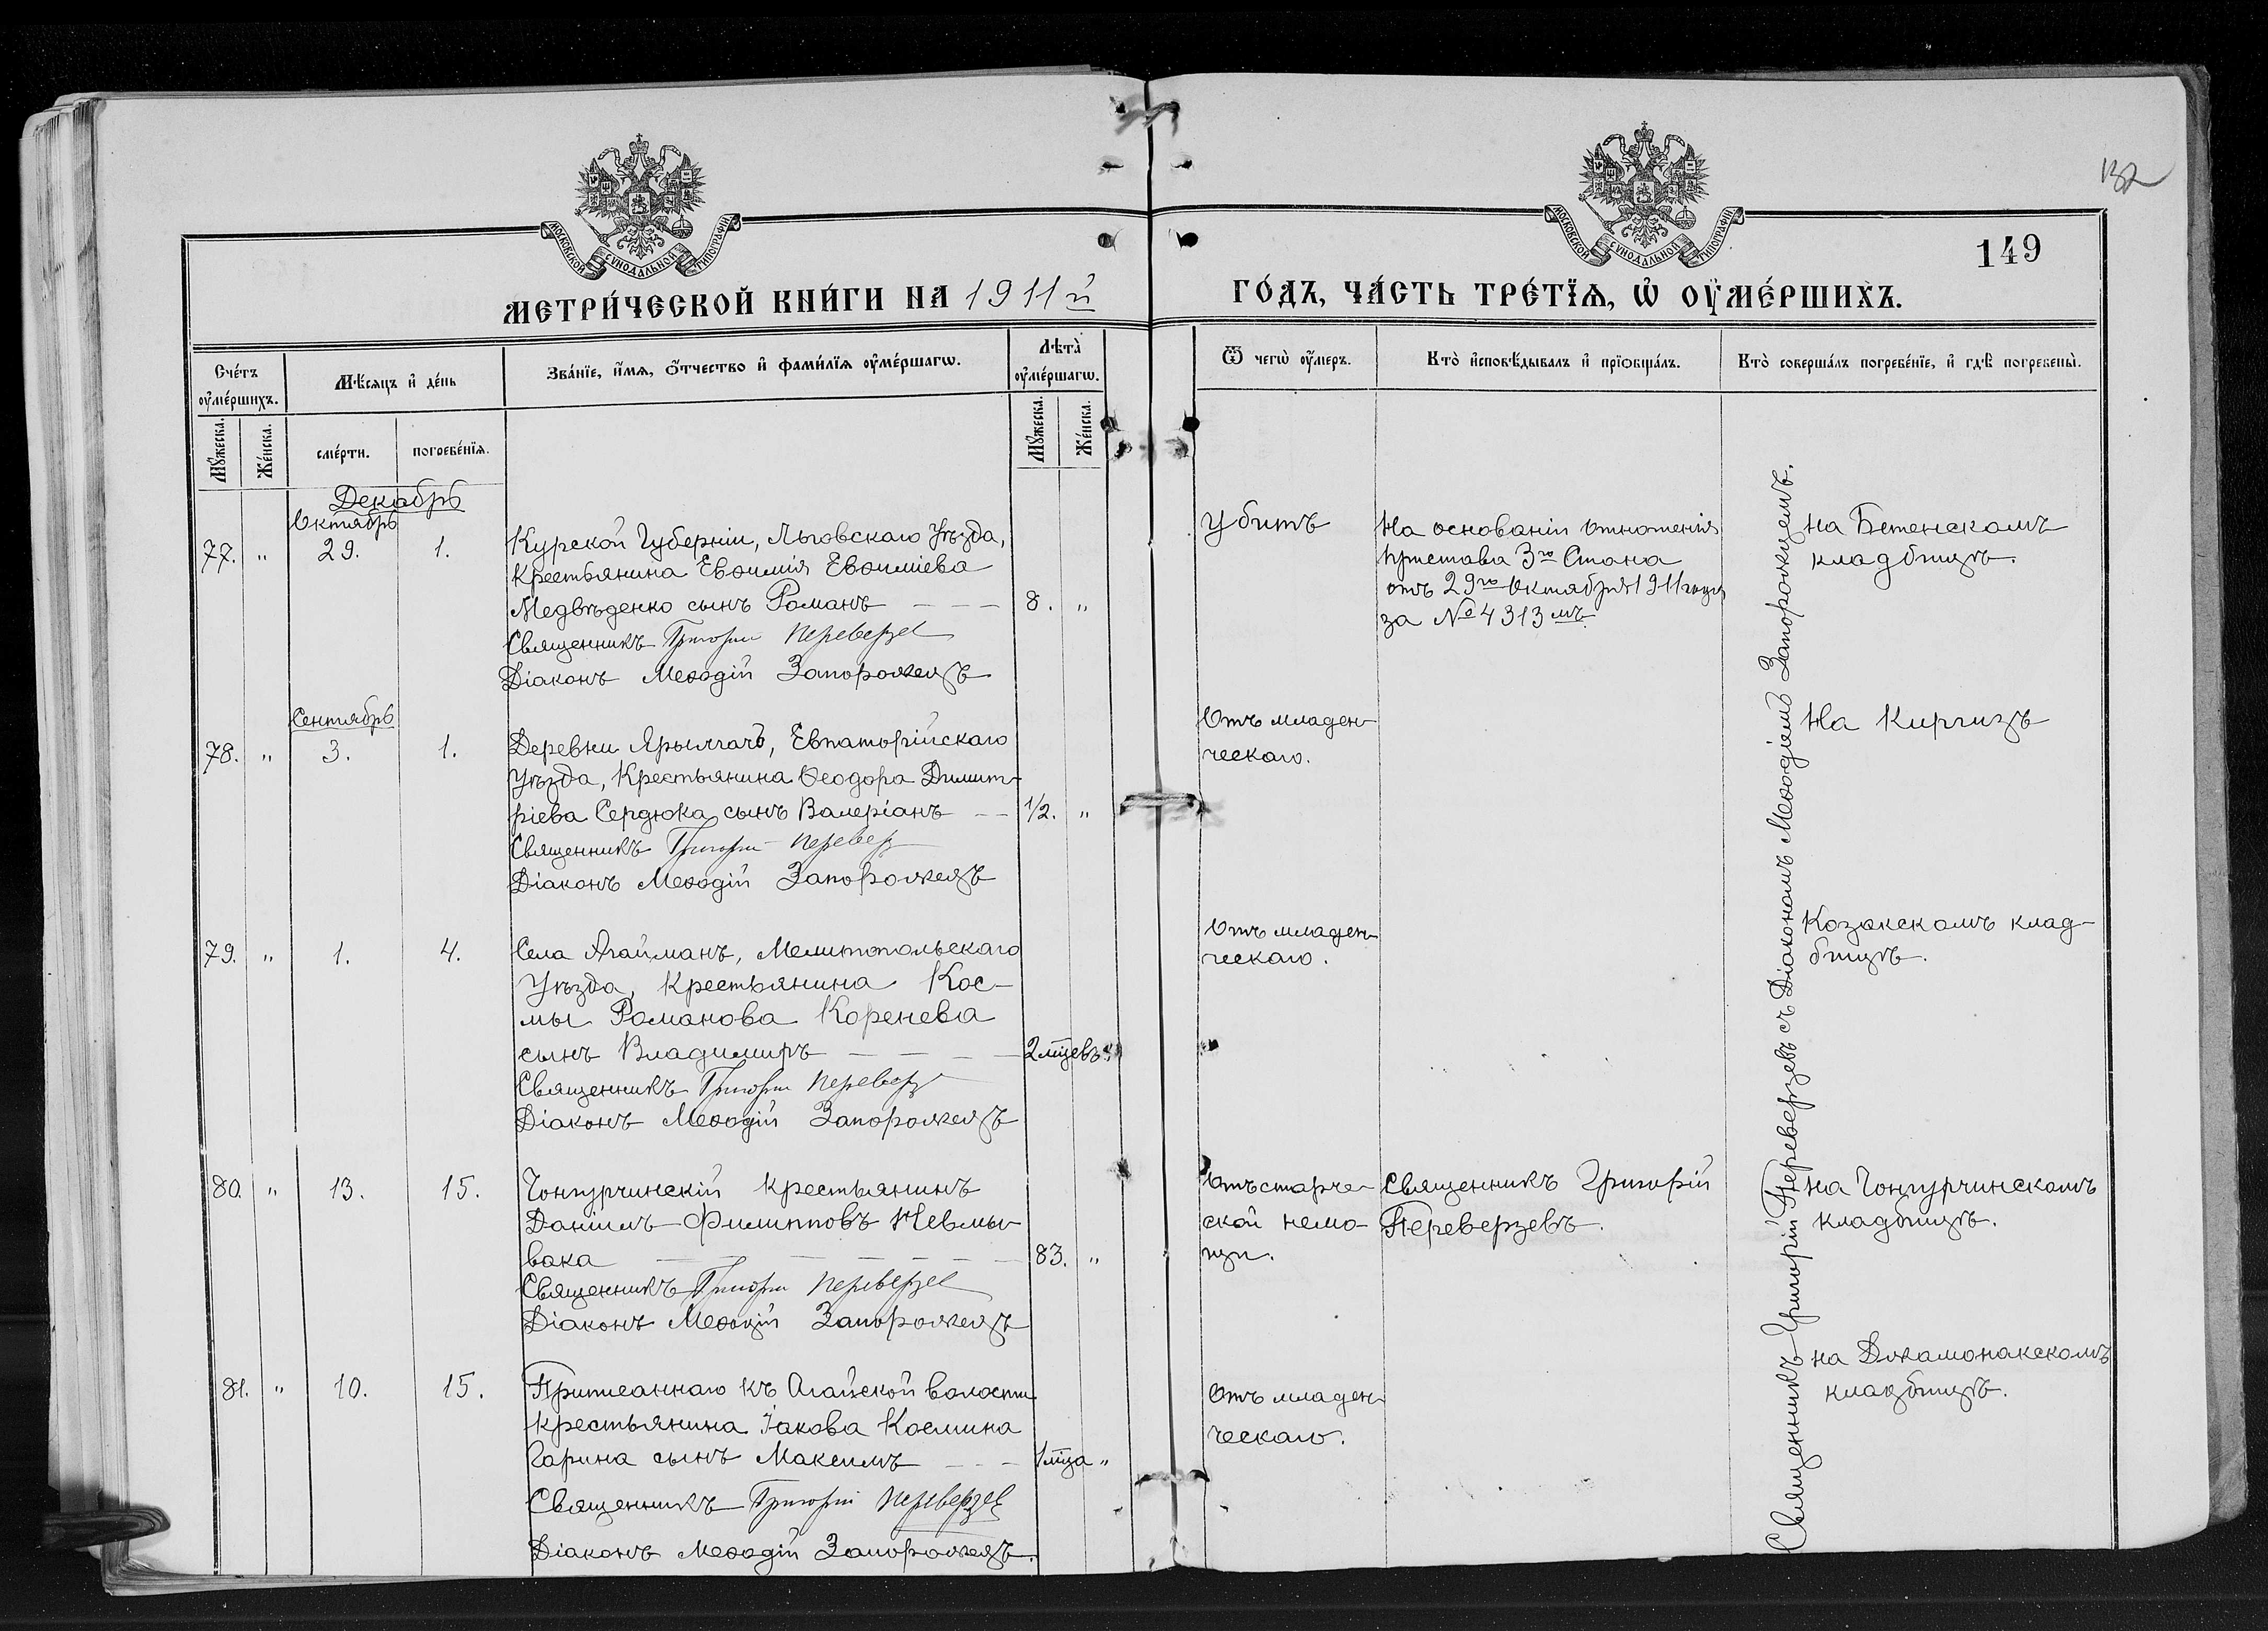 132
149
МОСКОВСКОЙ СѴНОДАЛЬНОЙ ТИПОГРАФІИ
МОСКОВСКОЙ СѴНОДАЛЬНОЙ ТИПОГРАФІИ
МЕТРИ́ЧЕСКОЙ КНИ́ГИ НА 1911й
ГО́ДЪ, ЧА́СТЬ ТРЕ́ТЇѦ, Ѡ ОУМЕ́РШИХЪ.
Сче́тъ оуме́ршихъ.
Мꙋ́жеска.
Же́нска.
Мѣ́сѧцъ и де́нь
сме́рти.
погребе́нїѧ.
Зва́нїе, и́мѧ, ѻ́тчество и фами́лїѧ оуме́ршагѡ.
Лѣта̀ оуме́ршагѡ.
Мꙋ́жеска.
Же́нска.
Ѿ чегѡ̀ оу́меръ.
Кто̀ исповѣ́дывалъ и прїѡбща́лъ.
Кто̀ соверша́лъ погребе́нїе, и гдѣ̀ погребены̀.
Декабрь
Октябрь
77. " 29. 1.
Курской Губерніи, Льговскаго Уѣзда,
Крестьянина Евѳимія Евѳиміева
Медвѣденко сынъ Романъ — — — 8. "
Священникъ Григорий Переверзев
Діаконъ Меѳодій Запорожецъ
Убитъ
На основаніи отношенія
Пристава 3го Стана
отъ 29го Октября 1911 года
за № 4313 мъ.
На Бетенскомъ
кладбищѣ.
Сентябрь
78. " 3. 1.
Деревни Ярылгачъ, Евпаторійскаго
Уѣзда, Крестьянина Ѳеодора Димит-
ріева Сердюка сынъ Валеріанъ — — 1/2. "
Священникъ Григорий Перевер
Діаконъ Меѳодій Запорожецъ
Отъ младен-
ческаго.
На Киргизъ
79. " 1. 4.
Села Агайманъ, Мелитопольскаго
Уѣзда, Крестьянина Кос-
мы Романова Коренева
сынъ Владимиръ — — — — 2 мцевъ "
Священникъ Григорий Переверз
Діаконъ Меѳодій Запорожецъ
Отъ младен-
ческаго.
Козакскомъ клад-
бищѣ.
80. " 13. 15.
Чонгурчинскій крестьянинъ
Даніилъ Филипповъ Невмы-
вака — — — — — — 83. "
Священникъ Григорий Переверзев
Діаконъ Меѳодій Запорожецъ
Отъ старче-
ской немо-
щи.
Священникъ Григорій
Переверзевъ.
На Чонгурчинскомъ
кладбищѣ.
81. " 10. 15.
Приписаннаго къ Агайской волости
крестьянина Іакова Космина
Гарина сынъ Максимъ — — — 1 мца "
Священникъ Григорій Переверзев
Діаконъ Меѳодій Запорожецъ.
Отъ младен-
ческаго.
на Джамонакскомъ
кладбищѣ.
Священникъ Григорій Переверзевъ съ Діакономъ Меѳодіемъ Запорожцемъ.